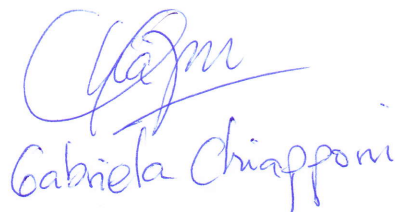 Gabriela Chiapponi